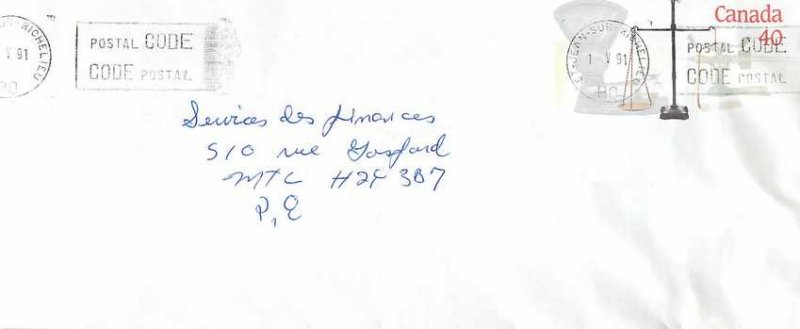 RICHELIEU
V 91
PO
POSTAL CODE
CODE POSTAL
ST-JEAN-SUR-RICHELIEU
1 V 91
PO
Canada
40
POSTAL CODE
CODE POSTAL
Services des finances
510 rue Gosford
MTL H2Y 3B7
P,Q